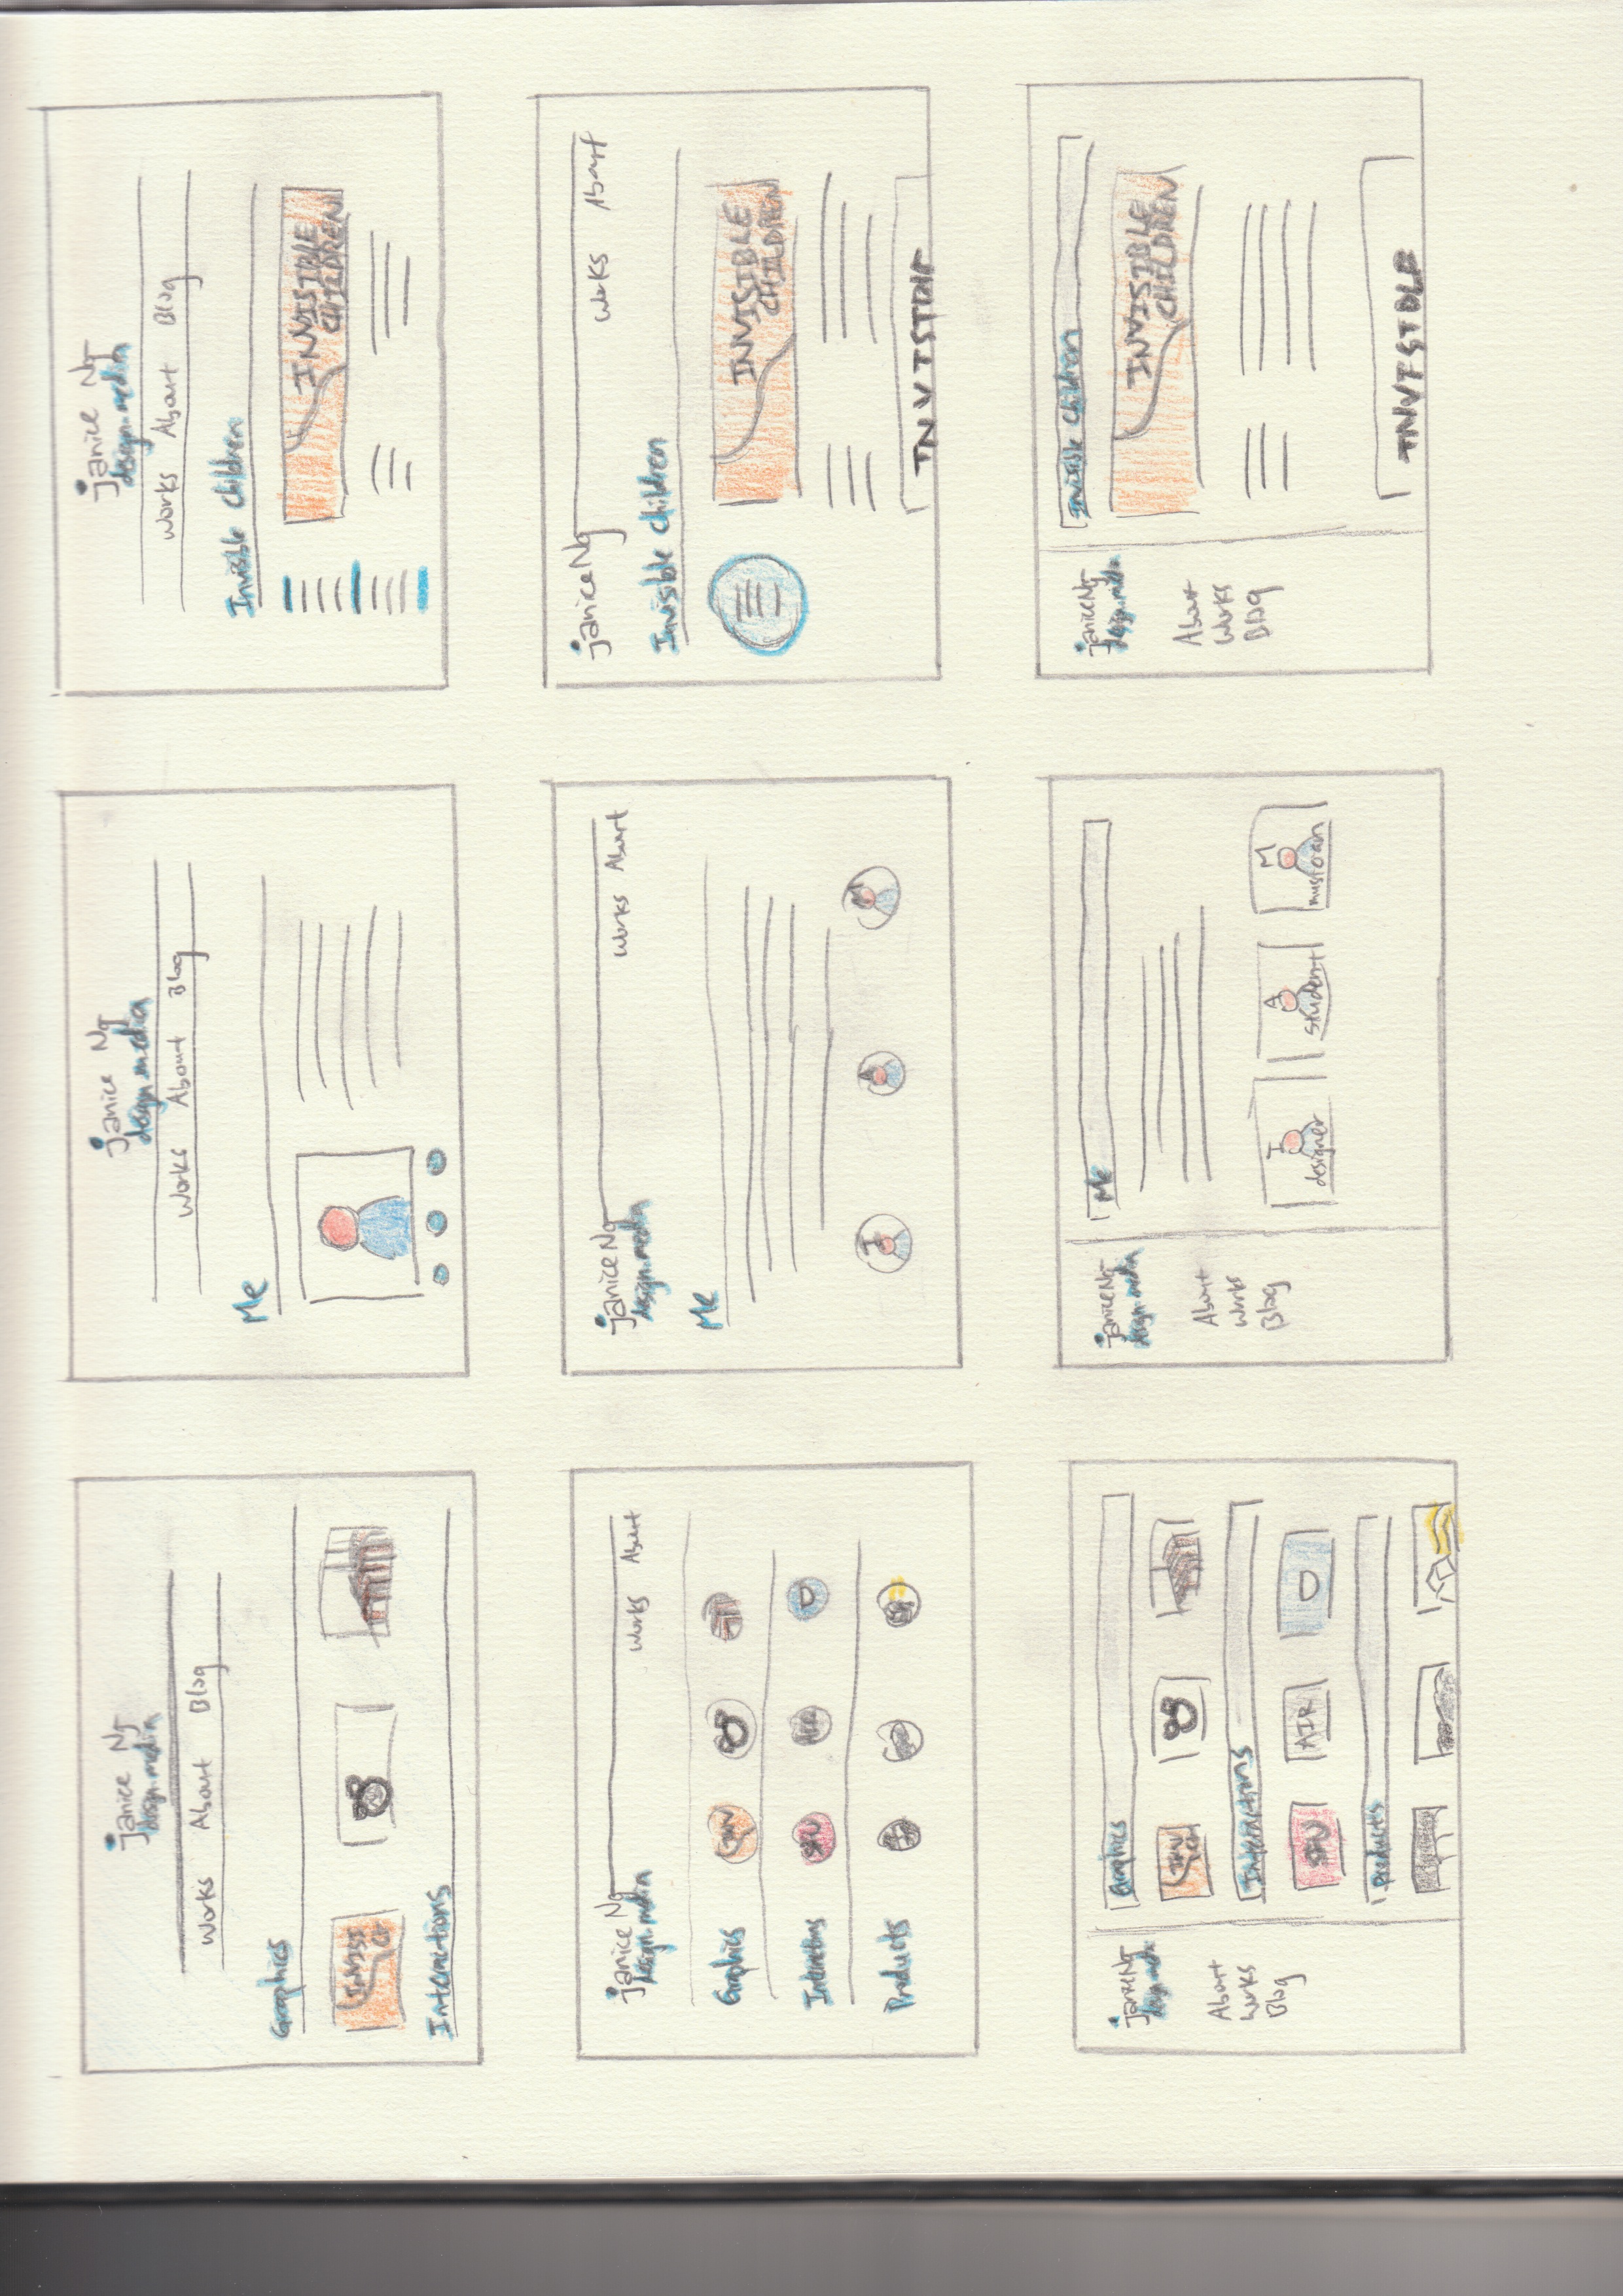 janice Ng
design.media
Works About Blog
Graphics
INVISI
CH
Interactions
janice Ng
design.media
Works About Blog
Me
janice Ng
design.media
Works About Blog
Invisible Children
INVISIBLE
CHILDREN
janice Ng
design.media
Works About
Graphics INV
Interactions SFU AIR D
Products
janice Ng
design.media
Works About
Me
I A M
janice Ng
Works About
Invisible Children
INVISIBLE
CHILDREN
janice Ng
design.media
About
Works
Blog
Graphics
INV
CH
Interactions
SFU AIR D
Products
janice Ng
design.media
About
Works
Blog
Me
I A M
designer student musician
janice Ng
design.media
About
Works
Blog
Invisible Children
INVISIBLE
CHILDREN